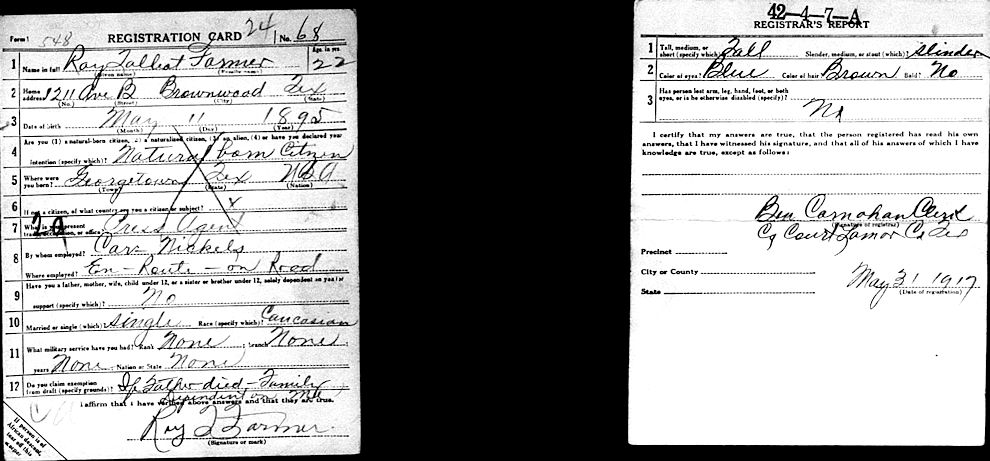 Form 1 548 REGISTRATION CARD 24 No. 68
Age, in yrs.
1 Name in full Roy Talliat Farmer 22
(Given name) (Family name)
2 Home address 1211 Ave B Brownwood Tex
(No.) (Street) (City) (State)
3 Date of birth May 11 1895
(Month) (Day) (Year)
Are you (1) a natural-born citizen, (2) a naturalized citizen, (3) an alien, (4) or have you declared your
4 intention (specify which)? Natural born Citizen
5 Where were you born? Georgetown Tex USA
(Town) (State) (Nation)
6 If not a citizen, of what country are you a citizen or subject? x
7 What is your present trade, occupation, or office? Press Agent
8 By whom employed? Carr Nickels
Where employed? En-Route-on Road
Have you a father, mother, wife, child under 12, or a sister or brother under 12, solely dependent on you for
9 support (specify which)? No
10 Married or single (which)? Single Race (specify which)? Caucasian
11 What military service have you had? Rank None ; branch None ;
years None ; Nation or State None
12 Do you claim exemption from draft (specify grounds)? If Father died - Family
Dependent on Me
I affirm that I have verified above answers and that they are true.
Roy T Farmer
(Signature or mark)
If person is of
African descent,
tear off this
corner
42-4-7-A
REGISTRAR'S REPORT
1 Tall, medium, or short (specify which)? Tall Slender, medium, or stout (which)? Slinder
2 Color of eyes? Blue Color of hair? Brown Bald? No
3 Has person lost arm, leg, hand, foot, or both
eyes, or is he otherwise disabled (specify)?
No
I certify that my answers are true, that the person registered has read his own
answers, that I have witnessed his signature, and that all of his answers of which I have
knowledge are true, except as follows:
Ben Carnahan Clerk
(Signature of registrar)
Co Court Lamar Co Tex
Precinct
City or County
State
May 31 1917
(Date of registration)